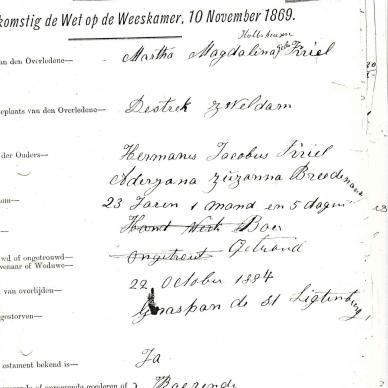 komstig de Wet op de Weeskamer, 10 November 1869.
Holtshausen
an den Overledene— Martha Magdalina geb Kriel
eplaats van den Overledene— Destrek Zeldam
der Ouders— Hermanus Jacobus Kriel
Aderyana zuzanna Breedenann
om— 23 Jaren 1 mand en 5 dagen
Hand Werk Boer
wd of ongetrouwd— ongetrout Getruud
wenaar of Weduwe—
van overlijden— 22 October 1884
gestorven— Graspan de st Ligtenburg
estament bekend is— Ja